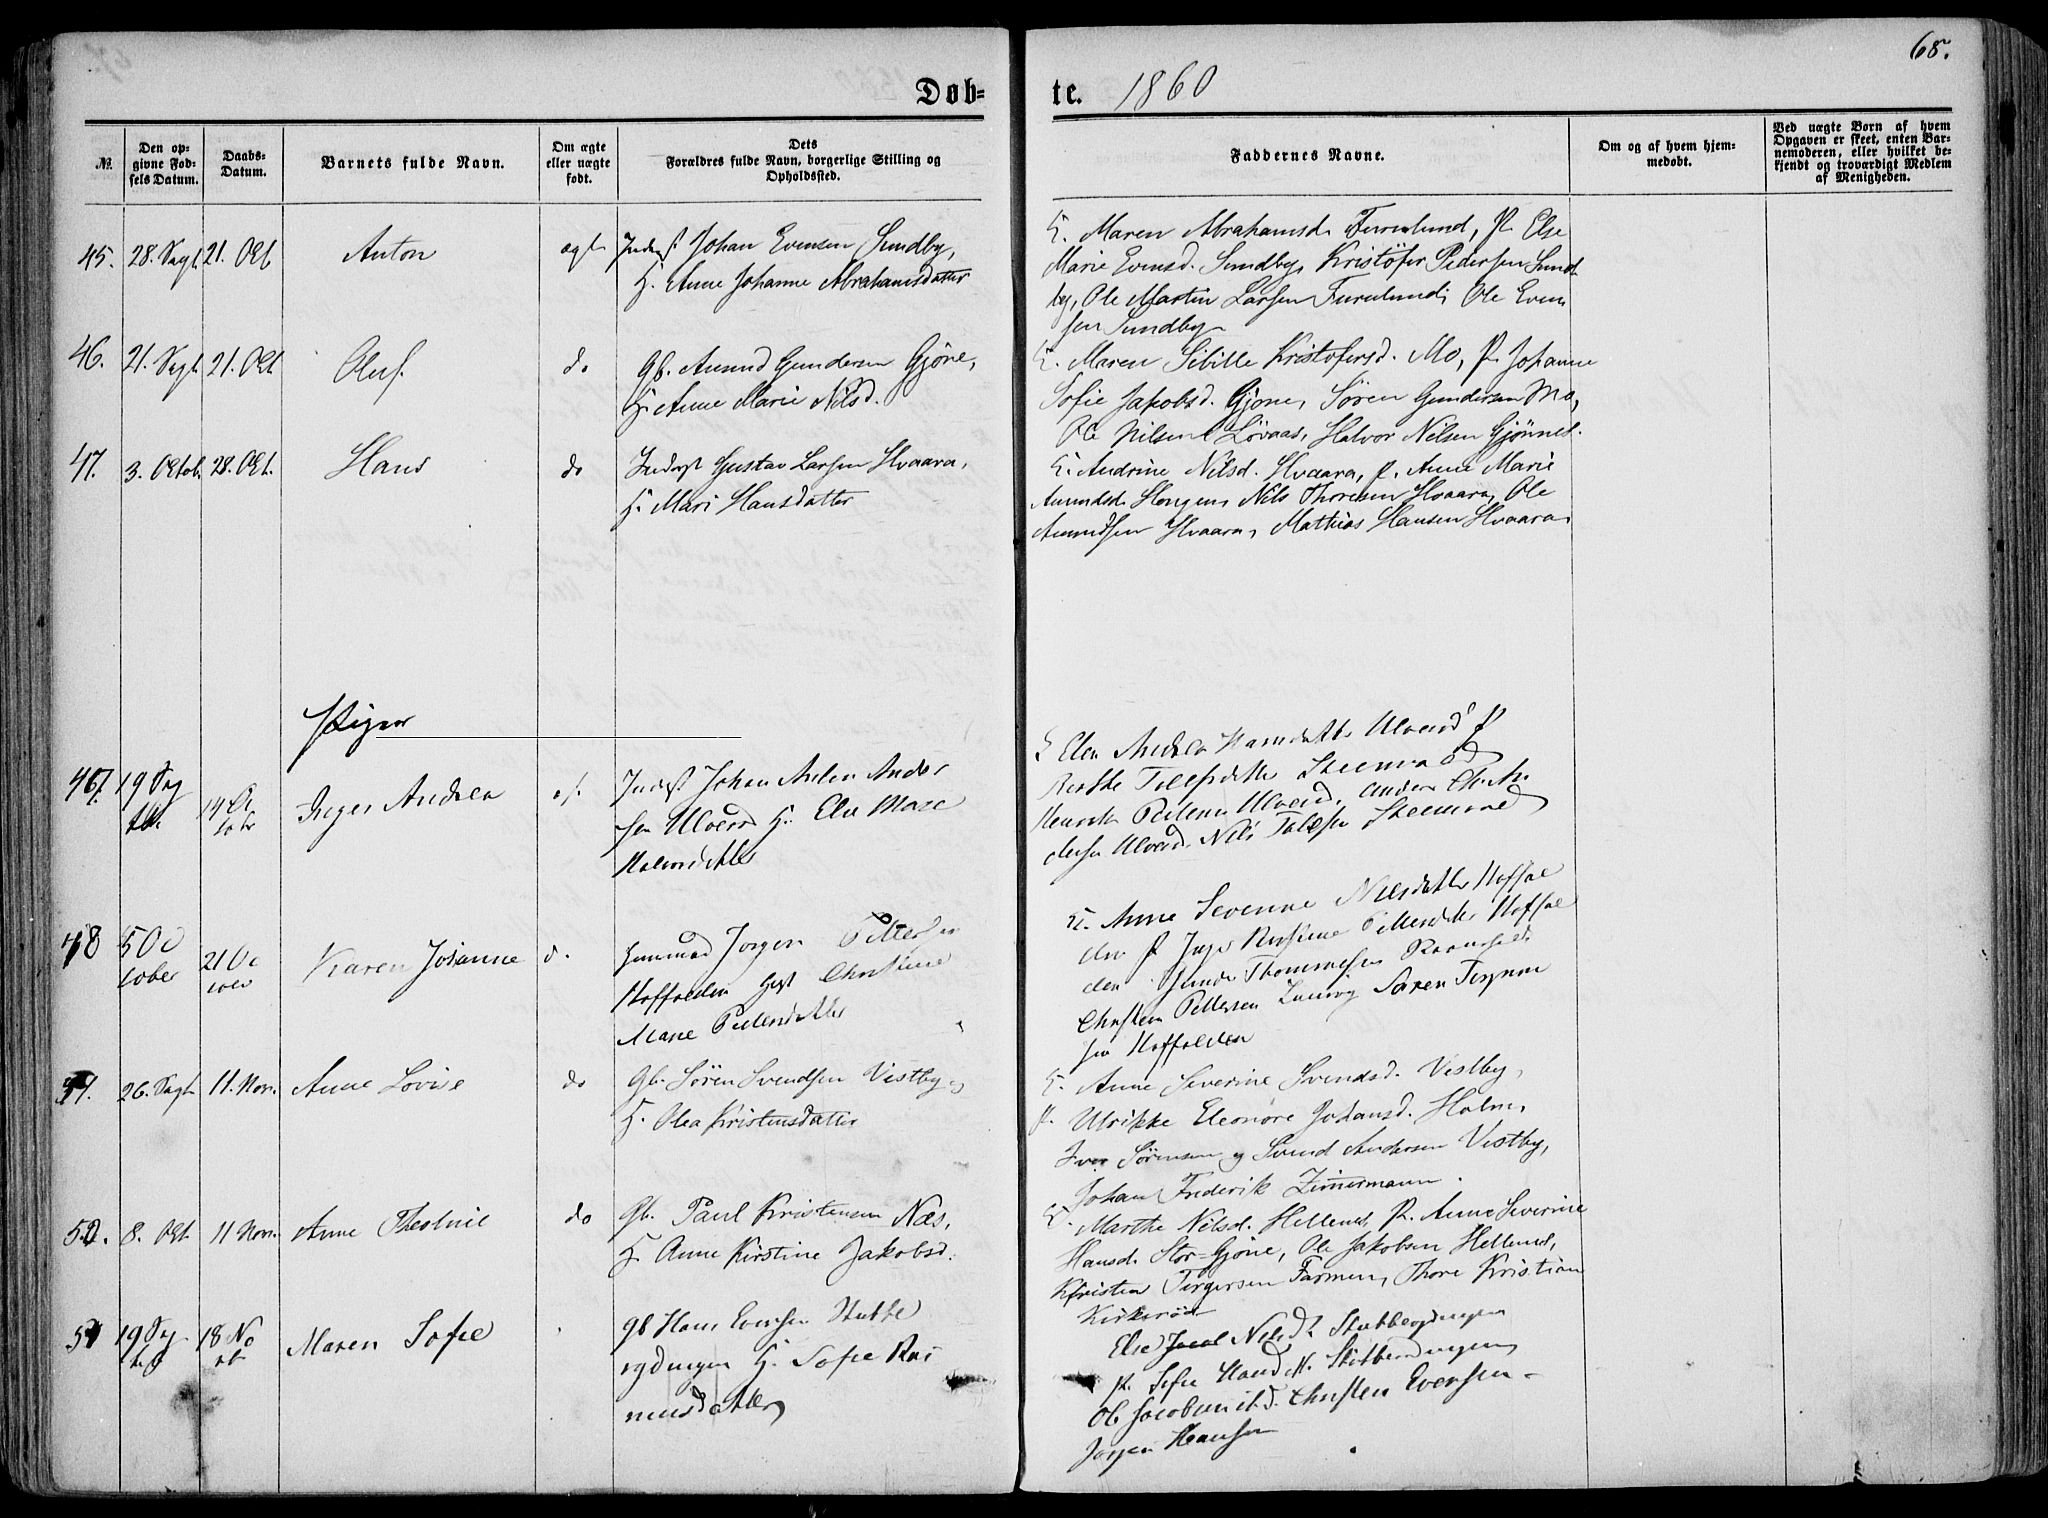 68.
Døb=
te. 1860
№.
Den op-
givne Fød-
sels Datum.
Daabs-
Datum.
Barnets fulde Navn.
Om ægte
eller uægte
født.
Dets
Forældres fulde Navn, borgerlige Stilling og
Opholdssted.
Faddernes Navne.
Om og af hvem hjem-
medøbt.
Ved uægte Børn af hvem
Opgaven er skeet, enten Bar-
nemoderen, eller hvilket be-
kjendt og troværdigt Medlem
af Menigheden.
45. 28. Sept. 21. Okt Anton ægt Inderst Johan Evensen Sundby,
H. Anne Johanne Abrahamsdatter
H. Maren Abrahamsd. Furulund, P. Else
Marie Evensd. Sundby, Kristofer Pedersen Sund
by, Ole Martin Larsen Furulund, Ole Even
sen Sundby
46. 21. Sept 21. Okt Oluf. do Gb. Amund Gundersen Gjøne,
H. Anne Marie Nilsd.
H. Maren Sibille Kristofersd. Mo, P. Johanne
Sofie Jakobsd. Gjøne, Søren Gundersen Mo,
Ole Nilsen Løvaas, Halvor Nilsen Gjønnes.
47. 3. Oktob. 28. Okt. Hans do Inderst Gustav Larsen Hvaara,
H. Mari Hansdatter
H. Andrine Nilsd. Hvaara, P. Anne Marie
Amundsd. Haugen, Nils Thoresen Hvaara, Ole
Amundsen Hvaara, Mathias Hansen Hvaara
Piger
47. 19 Sep 14 Oc
tober Inger Andrea Inderst Johan Anton Ander
sen H. Else Mare
Halvordatter
H Elen Andrea P
Berthe
Henrik Pedersen Anders
dersen Nils
48 5 Oc
tober 21 Oc
tober Karen Josanne d. Gaarmand Jorgen Pettersen
Hoffolden H Christine
Marie Pettersdatter
H. Anne Severine Nielsdatter Hoffol
den P Inger Kirstine Pettersdatter Hoffol
den Thommesen
Christen Pettersen Søren
sen Hoffolden
49. 26. Sept 11. Nov. Anne Lovise do Gb. Søren Svendsen Vestby og
H. Olea Kristensdatter
H. Anne Severine Svendsd. Vestby,
P. Ulrikke Eleonore Johansd. Holm,
Iver Sørensen og Svend Andersen Vestby,
Johan Frederik Zimmermann.
50. 8. Okt. 11 Nov. Anne Theoline do Gb. Paul Kristensen Næs,
H. Anne Kirstine Jakobsd.
H. Marthe Nilsd. Helland, P. Anne Severine
Hansd. Stor-Gjøne, Ole Jakobsen Helland,
Kristen Torgersen Farmen, Thore Kristian
Kirkerød
51 19 Sep
18 No Maren Sofie Gb Hans Evensen Stubbe
rydningen H. Sofie Ras
musdatter
Else Nilsd. Stubberydningen
P. Sofie Hansd. Stubberydningen
Ole Jacobsen Christen Evensen
Jørgen Hansen